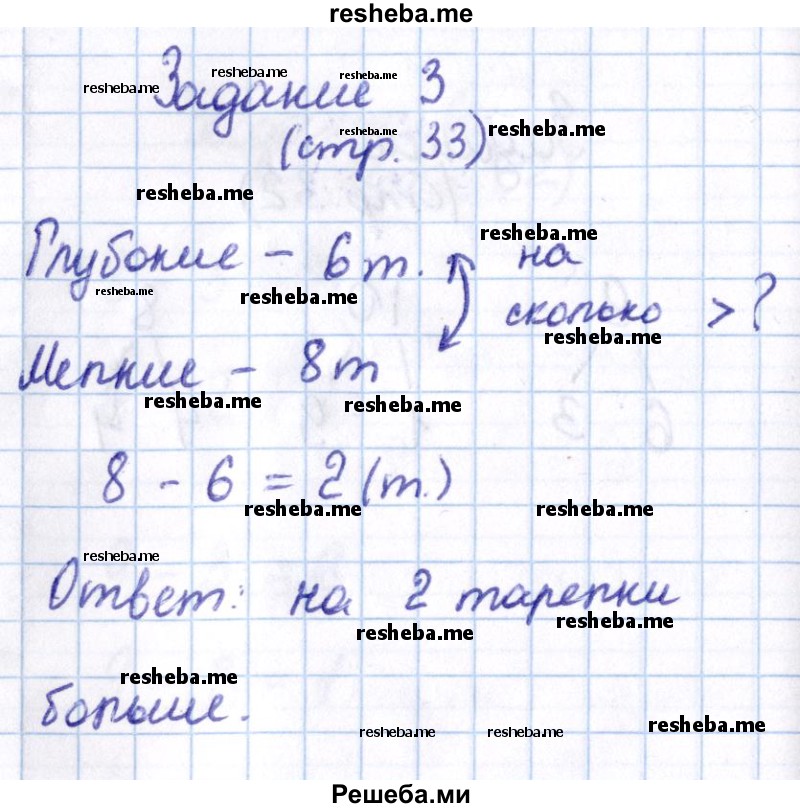 resheba.me
resheba.me resheba.me resheba.me
Задание 3
(стр. 33)
resheba.me resheba.me
resheba.me
Глубокие – 6 т. на
resheba.me
resheba.me resheba.me
сколько > ?
resheba.me
Мелкие – 8 т
resheba.me resheba.me
8 - 6 = 2 (т.)
resheba.me resheba.me
resheba.me
Ответ: на 2 тарелки
resheba.me resheba.me
resheba.me
больше.
resheba.me resheba.me resheba.me
Решеба.ми